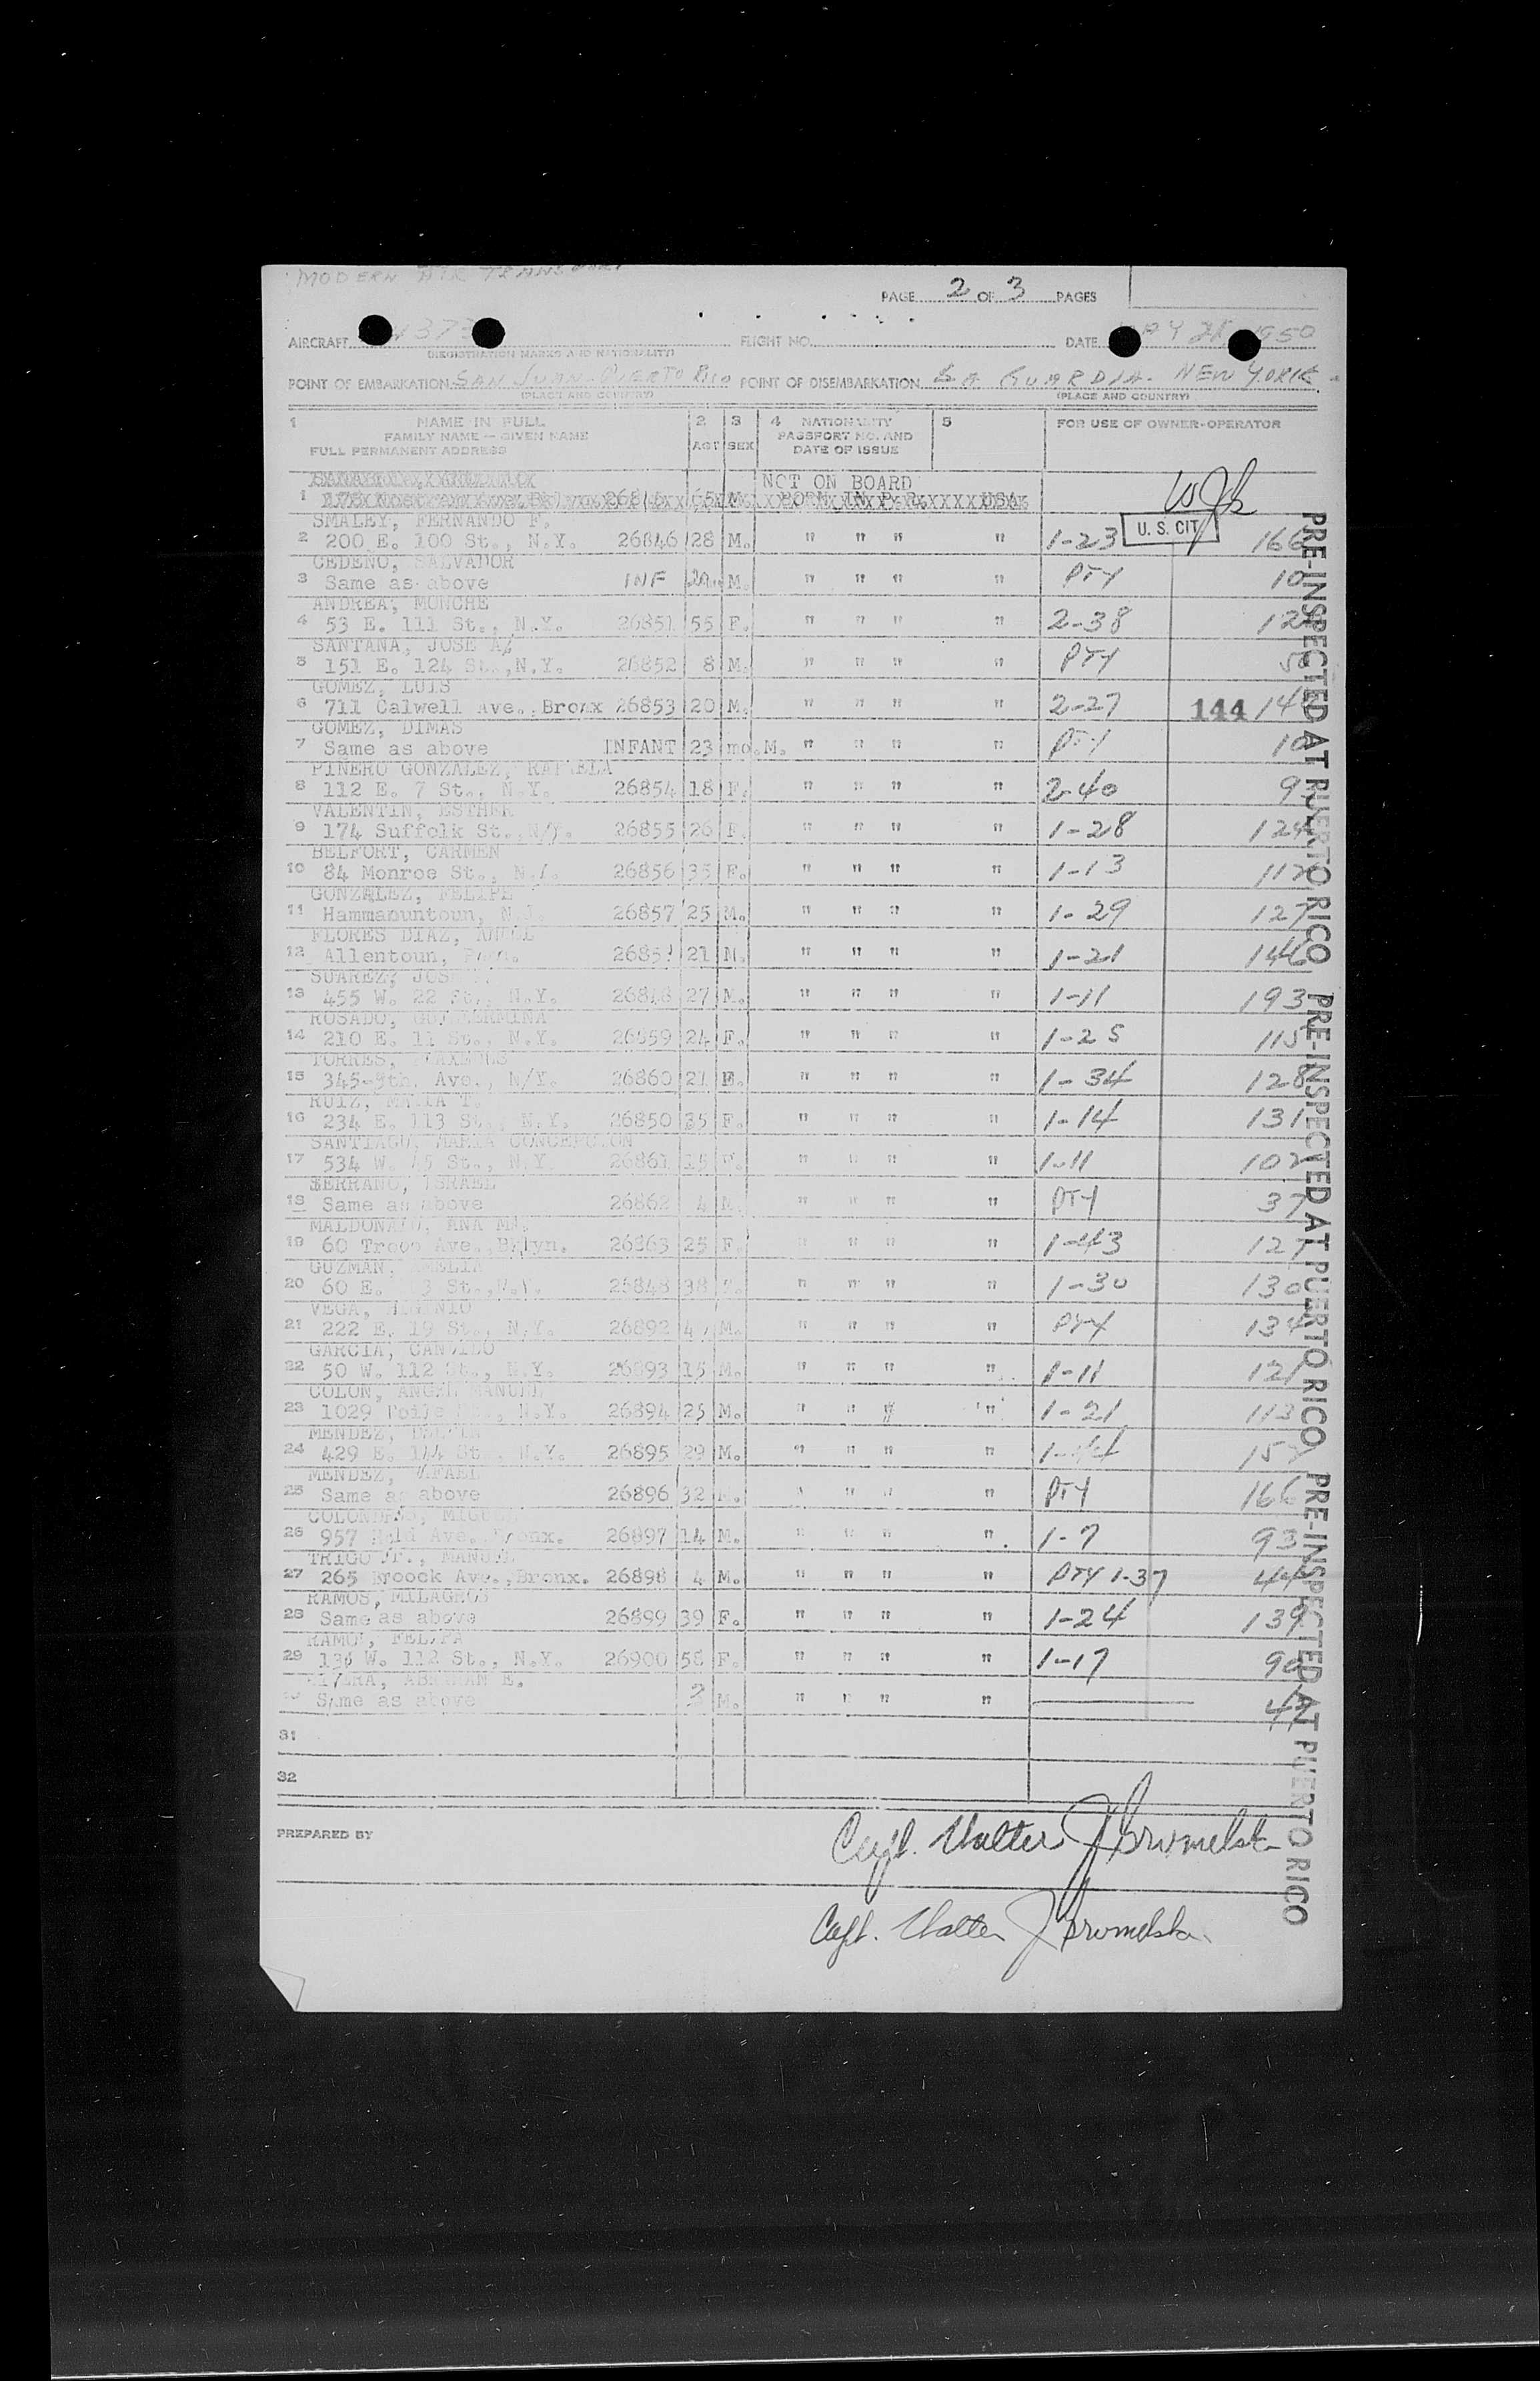 MODERN AIR TRANSPORT
PAGE 2 OF 3 PAGES
AIRCRAFT FLIGHT NO. DATE 1950
(REGISTRATION MARKS AND NATIONALITY)
POINT OF EMBARKATION SAN JUAN - PUERTO RICO POINT OF DISEMBARKATION LA GUARDIA - NEW YORK
(PLACE AND COUNTRY) (PLACE AND COUNTRY)
1 NAME IN FULL 2 3 4 NATIONALITY 5 FOR USE OF OWNER-OPERATOR
FAMILY NAME — GIVEN NAME AGE SEX PASSPORT NO. AND
FULL PERMANENT ADDRESS DATE OF ISSUE
NOT ON BOARD
1 65 M. BORN IN P.R. USA
SMALEY, FERNANDO F.
2 200 E. 100 St., N.Y. 26846 28 M. " " " " 1-23 U. S. CIT 166
CEDEÑO, SALVADOR
3 Same as above INF M. " " " " PTY 10
ANDREA, MONCHE
4 53 E. 111 St., N.Y. 26851 55 F. " " " " 2-38
SANTANA, JOSE A
5 151 E. 124 St., N.Y. 26852 8 M. " " " " PTY
GOMEZ, LUIS
6 711 Calwell Ave., Bronx 26853 20 M. " " " " 2-27 144
GOMEZ, DIMAS
7 Same as above INFANT 23 mo. M. " " " " PTY
PIÑERO GONZALEZ, RAFAELA
8 112 E. 7 St., N.Y. 26854 18 F. " " " " 2-40
VALENTIN, ESTHER
9 174 Suffolk St., N/Y. 26855 26 F. " " " " 1-28 124
BELFORT, CARMEN
10 84 Monroe St., N.Y. 26856 35 F. " " " " 1-13 112
GONZALEZ, FELIPE
11 Hammanuntoun, N.J. 26857 25 M. " " " " 1-29 127
FLORES DIAZ, ANGEL
12 Allentoun, 21 M. " " " " 1-21 146
SUAREZ, JOSE
13 455 W. 22 St., N.Y. 27 M. " " " " 1-11 193
ROSADO, GUILLERMINA
14 210 E. 11 St., N.Y. 26859 24 F. " " " " 1-25 115
TORRES,
15 345-9th. Ave., N/Y. 26860 21 F. " " " " 1-34 128
RUIZ, MARIA T.
16 234 E. 113 St., N.Y. 26850 35 F. " " " " 1-14 131
SANTIAGO, MARIA CONCEPCION
17 534 W. 45 St., N.Y. 26861 15 F. " " " " 1-11 102
SERRANO, ISRAEL
18 Same as above 26862 4 M. " " " " PTY 37
MALDONADO, ANA M.
19 60 Troop Ave., Bklyn. 26863 25 F. " " " " 1-43 127
GUZMAN, AMELIA
20 60 E. 3 St., N.Y. 26848 38 F. " " " " 1-30 130
VEGA, HIGINIO
21 222 E. 19 St., N.Y. 26892 47 M. " " " " PTY 134
GARCIA, CANDIDO
22 50 W. 112 St., N.Y. 26893 15 M. " " " " 1-11 121
COLON, ANGEL MANUEL
23 1029 N.Y. 26894 25 M. " " " " 1-21 113
MENDEZ,
24 429 E. 144 St., N.Y. 26895 29 M. " " " " 1-44
MENDEZ, RAFAEL
25 Same as above 26896 32 M. " " " " PTY 166
COLONDRES, MIGUEL
26 957 Ave., Bronx. 26897 14 M. " " " " 1-7 93
TRIGO JR., MANUEL
27 265 Broock Ave., Bronx. 26898 4 M. " " " " PTY 1-37 44
RAMOS, MILAGROS
28 Same as above 26899 39 F. " " " " 1-24 139
RAMOS, FELIPA
29 136 W. 112 St., N.Y. 26900 58 F. " " " " 1-17 90
RIVERA, ABRAHAM E.
Same as above 3 M. " " " "
31
32
PREPARED BY
Capt. Walter J
Capt. Walter J
PRE-INSPECTED AT PUERTO RICO PRE-INSPECTED AT PUERTO RICO PRE-INSPECTED AT PUERTO RICO